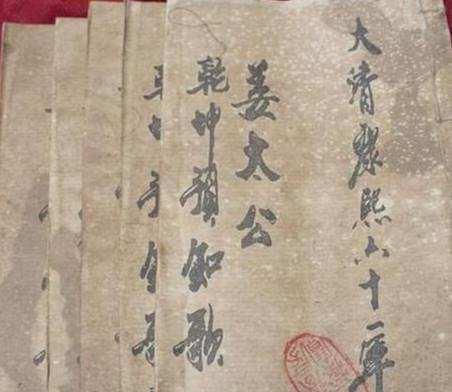 大清康熙六十一年
姜太公
乾坤預知歌